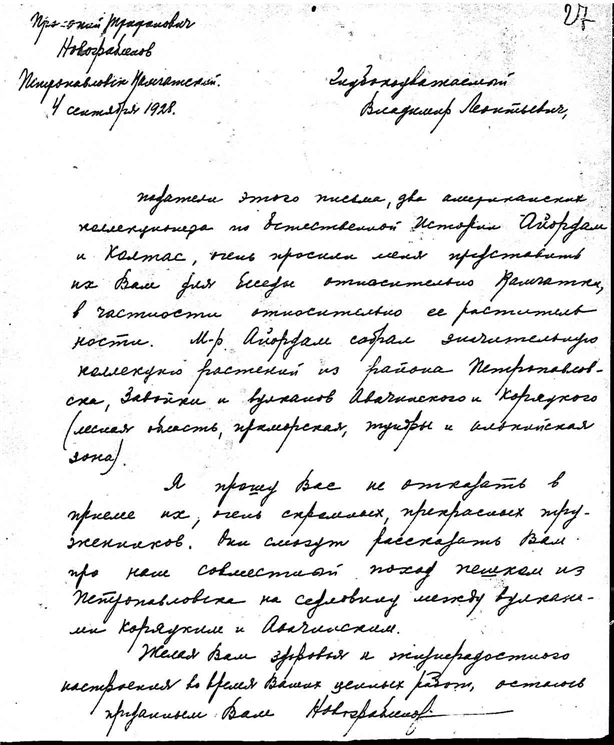 27
Про-окий Трифонович
Новограбленов
Петропавловск Камчатский.
4 сентября 1928.
Глубокоуважаемый
Владимир Леонтьевич,
податели этого письма, два американских
коллекционера по Естественной Истории Айордам
и Колтас, очень просили меня представить
их Вам для беседы относительно Камчатки,
в частности относительно ее раститель
ности. М-р Айордам собрал значительную
коллекцию растений из района Петропавлов-
ска, Завойки и вулканов Авачинского и Корякского
(лесная область, приморская, тундры и альпийская
зона).
Я прошу Вас не отказать в
приеме их, очень скромных, прекрасных тру-
жеников. Они смогут рассказать Вам
про наш совместный поход пешком из
Петропавловска на седловину между вулкана-
ми Коряцким и Авачинским.
Желая Вам здоровья и жизнерадостного
настроения во время Ваших ценных работ, остаюсь
преданным Вам Новограбленов